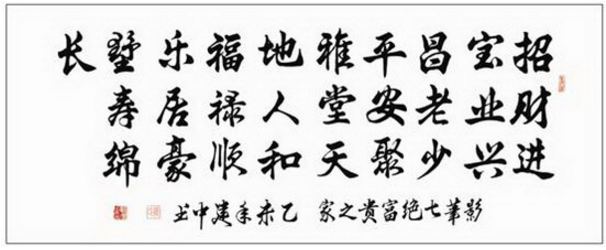 招财进
宝业兴
昌老少
平安聚
雅堂天
地人和
福禄顺
乐居豪
墅寿绵
长
影華七绝富贵之家 乙未年建中书